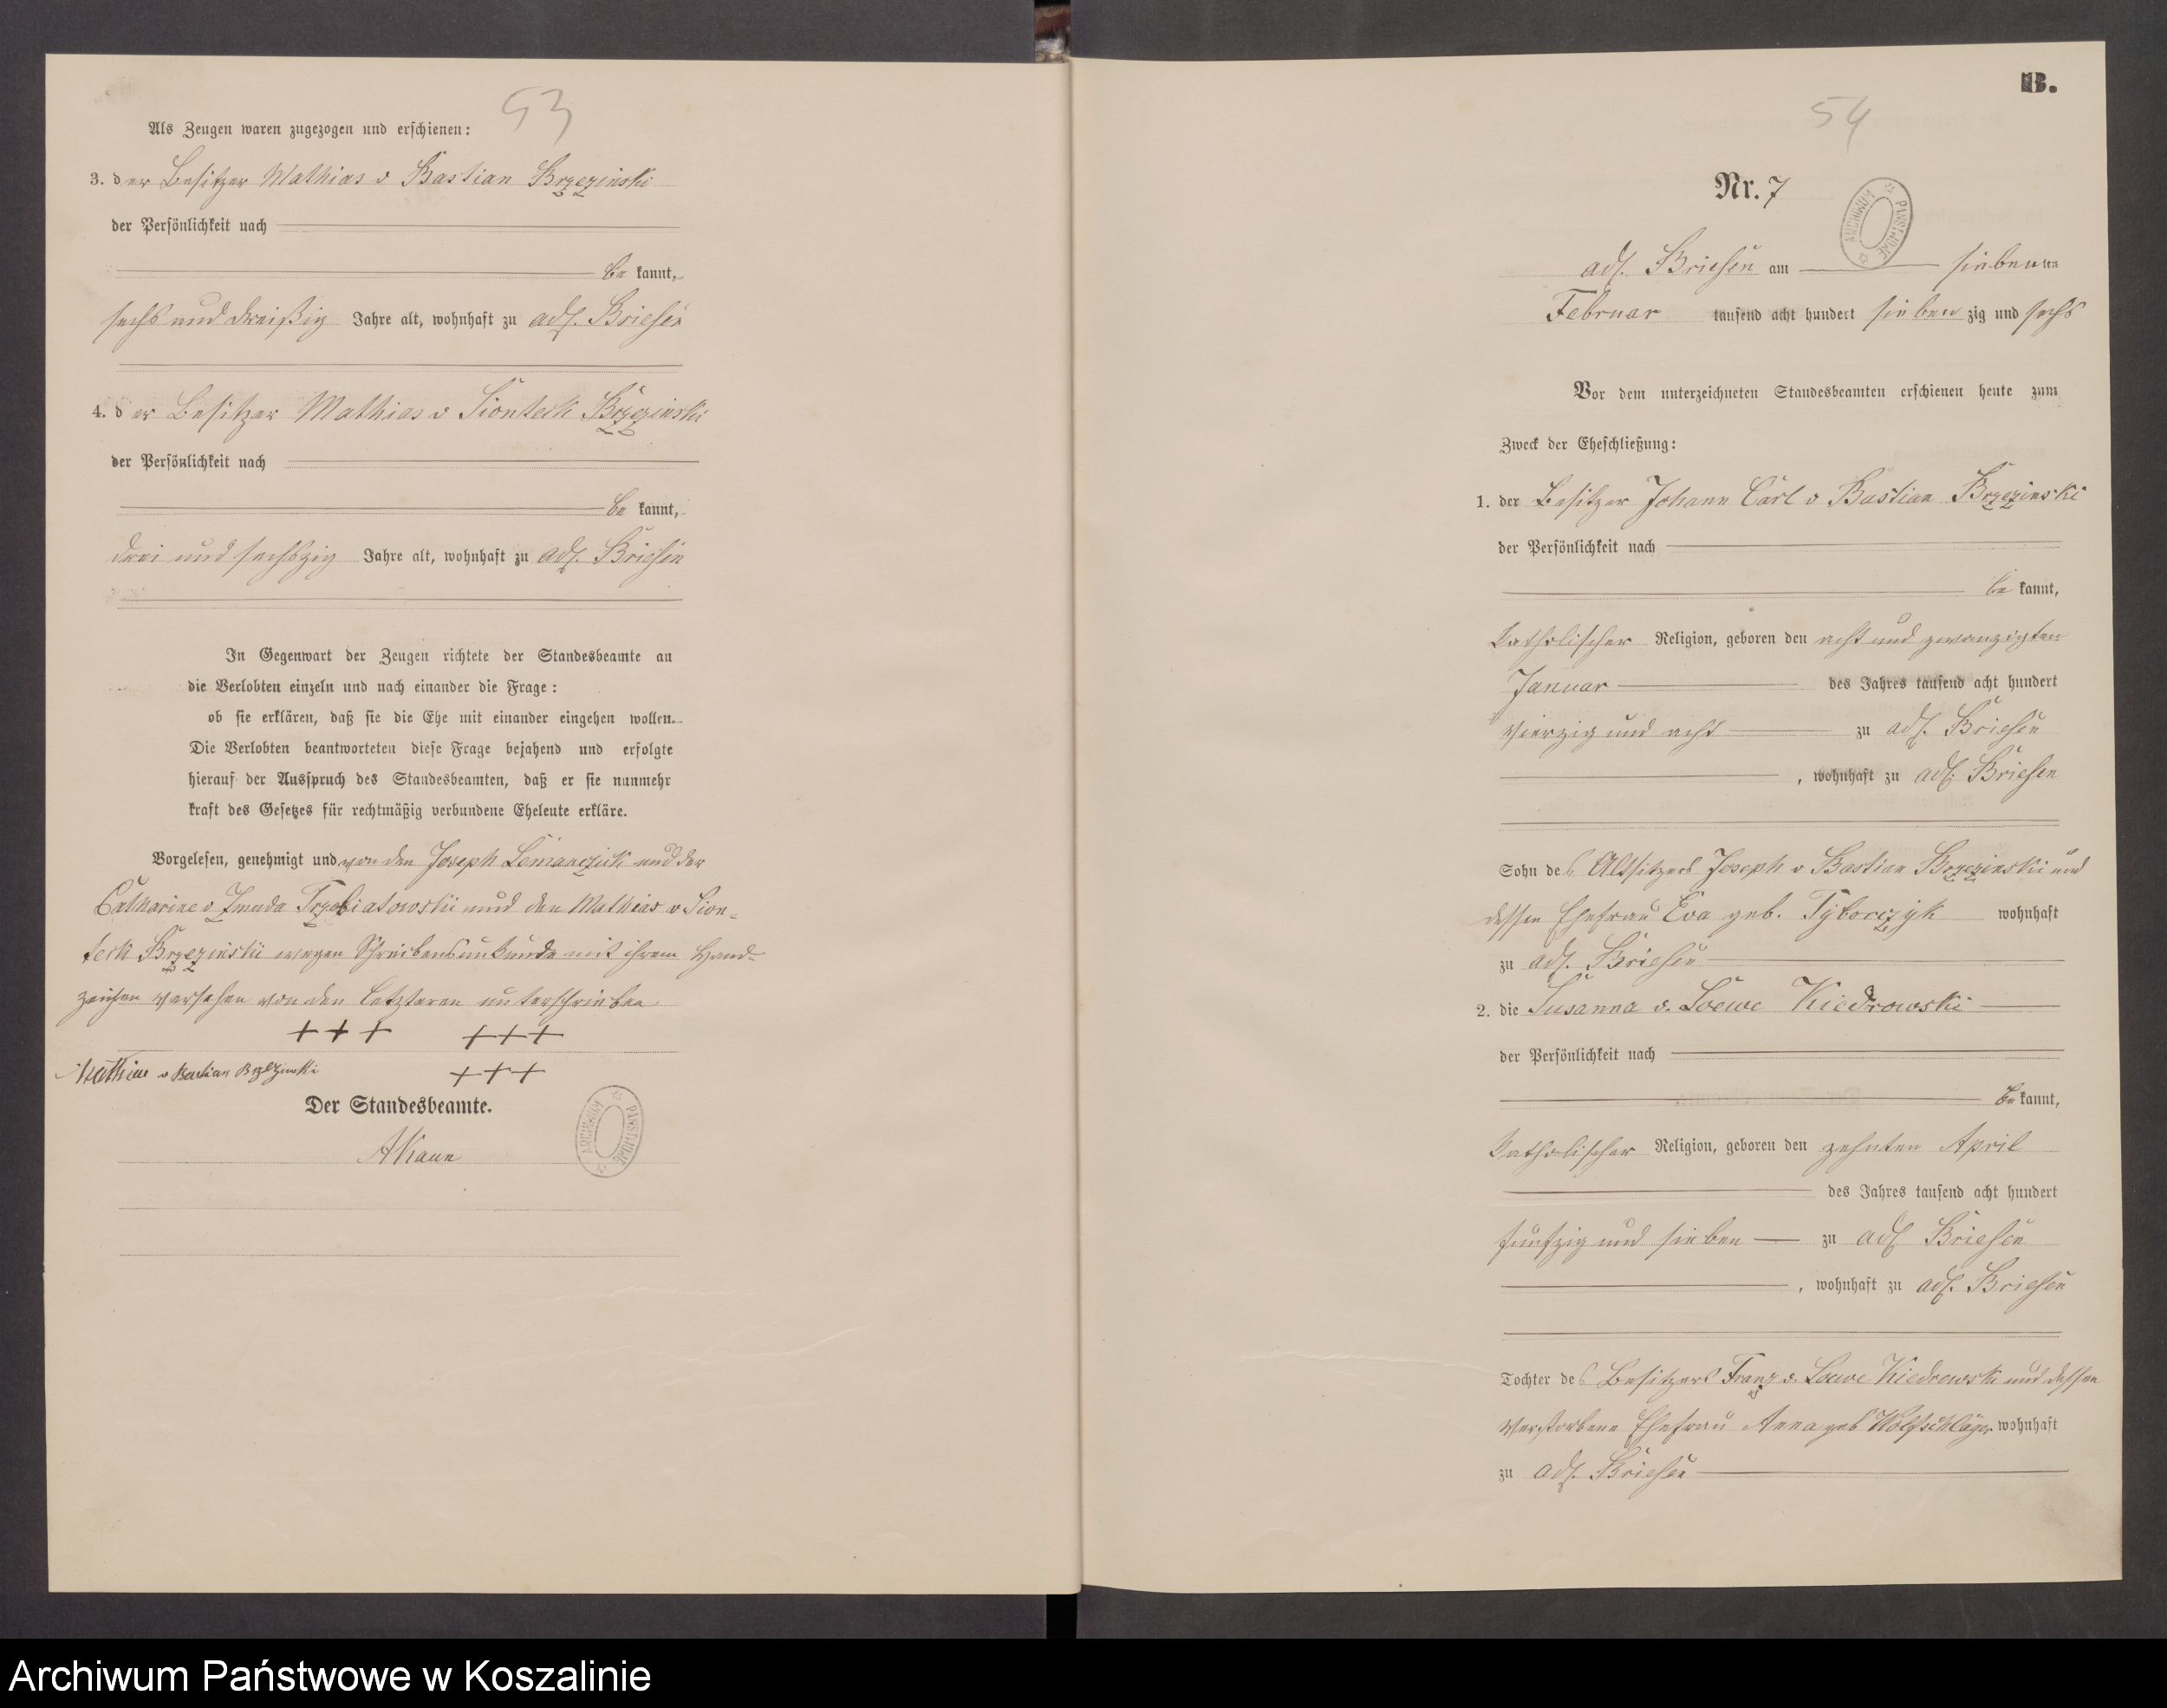 53
Als Zeugen waren zugezogen und erschienen:
3. der Besitzer Mathias v Bastian Brzezinski
der Persönlichkeit nach
be kannt,
sechs und dreißig Jahre alt, wohnhaft zu adl. Briesen
4. der Besitzer Mathias v Sionteck Brzezinski
der Persönlichkeit nach
be kannt,
drei und sechszig Jahre alt, wohnhaft zu adl. Briesen
In Gegenwart der Zeugen richtete der Standesbeamte an
die Verlobten einzeln und nach einander die Frage:
ob sie erklären, daß sie die Ehe mit einander eingehen wollen.
Die Verlobten beantworteten diese Frage bejahend und erfolgte
hierauf der Ausspruch des Standesbeamten, daß er sie nunmehr
kraft des Gesetzes für rechtmäßig verbundene Eheleute erkläre.
Vorgelesen, genehmigt und von den Joseph Lemanczick und der
Catharine v Zmuda Trzebiatowski und den Mathias v Sion=
teck Brzezinski wegen Schreibensunkunde mit ihrem Hand=
zeichen versehen von den Letzteren unterschrieben
+++ +++
Mathias v Bastian Brzezinski +++
Der Standesbeamte.
AKaun
ARCHIWUM PAŃSTWOWE
B.
54
Nr. 7
ARCHIWUM PAŃSTWOWE
adl. Briesen am siebenten
Februar tausend acht hundert siebenzig und sechs
Vor dem unterzeichneten Standesbeamten erschienen heute zum
Zweck der Eheschließung:
1. der Besitzer Johann Carl v Bastian Brzezinski
der Persönlichkeit nach
be kannt,
katholischer Religion, geboren den acht und zwanzigsten
Januar des Jahres tausend acht hundert
vierzig und acht zu adl. Briesen
, wohnhaft zu adl. Briesen
Sohn des Altsitzers Joseph v Bastian Brzezinski und
dessen Ehefrau Eva geb. Tyborczyk wohnhaft
zu adl. Briesen
2. die Susanna v. Loewe Kiedrowski
der Persönlichkeit nach
be kannt,
katholischer Religion, geboren den zehnten April
des Jahres tausend acht hundert
fünfzig und sieben zu adl Briesen
, wohnhaft zu adl. Briesen
Tochter des Besitzers Franz v. Loewe Kiedrowski und dessen
verstorbene Ehefrau Anna geb Wolfschläger wohnhaft
zu adl. Briesen
Archiwum Państwowe w Koszalinie